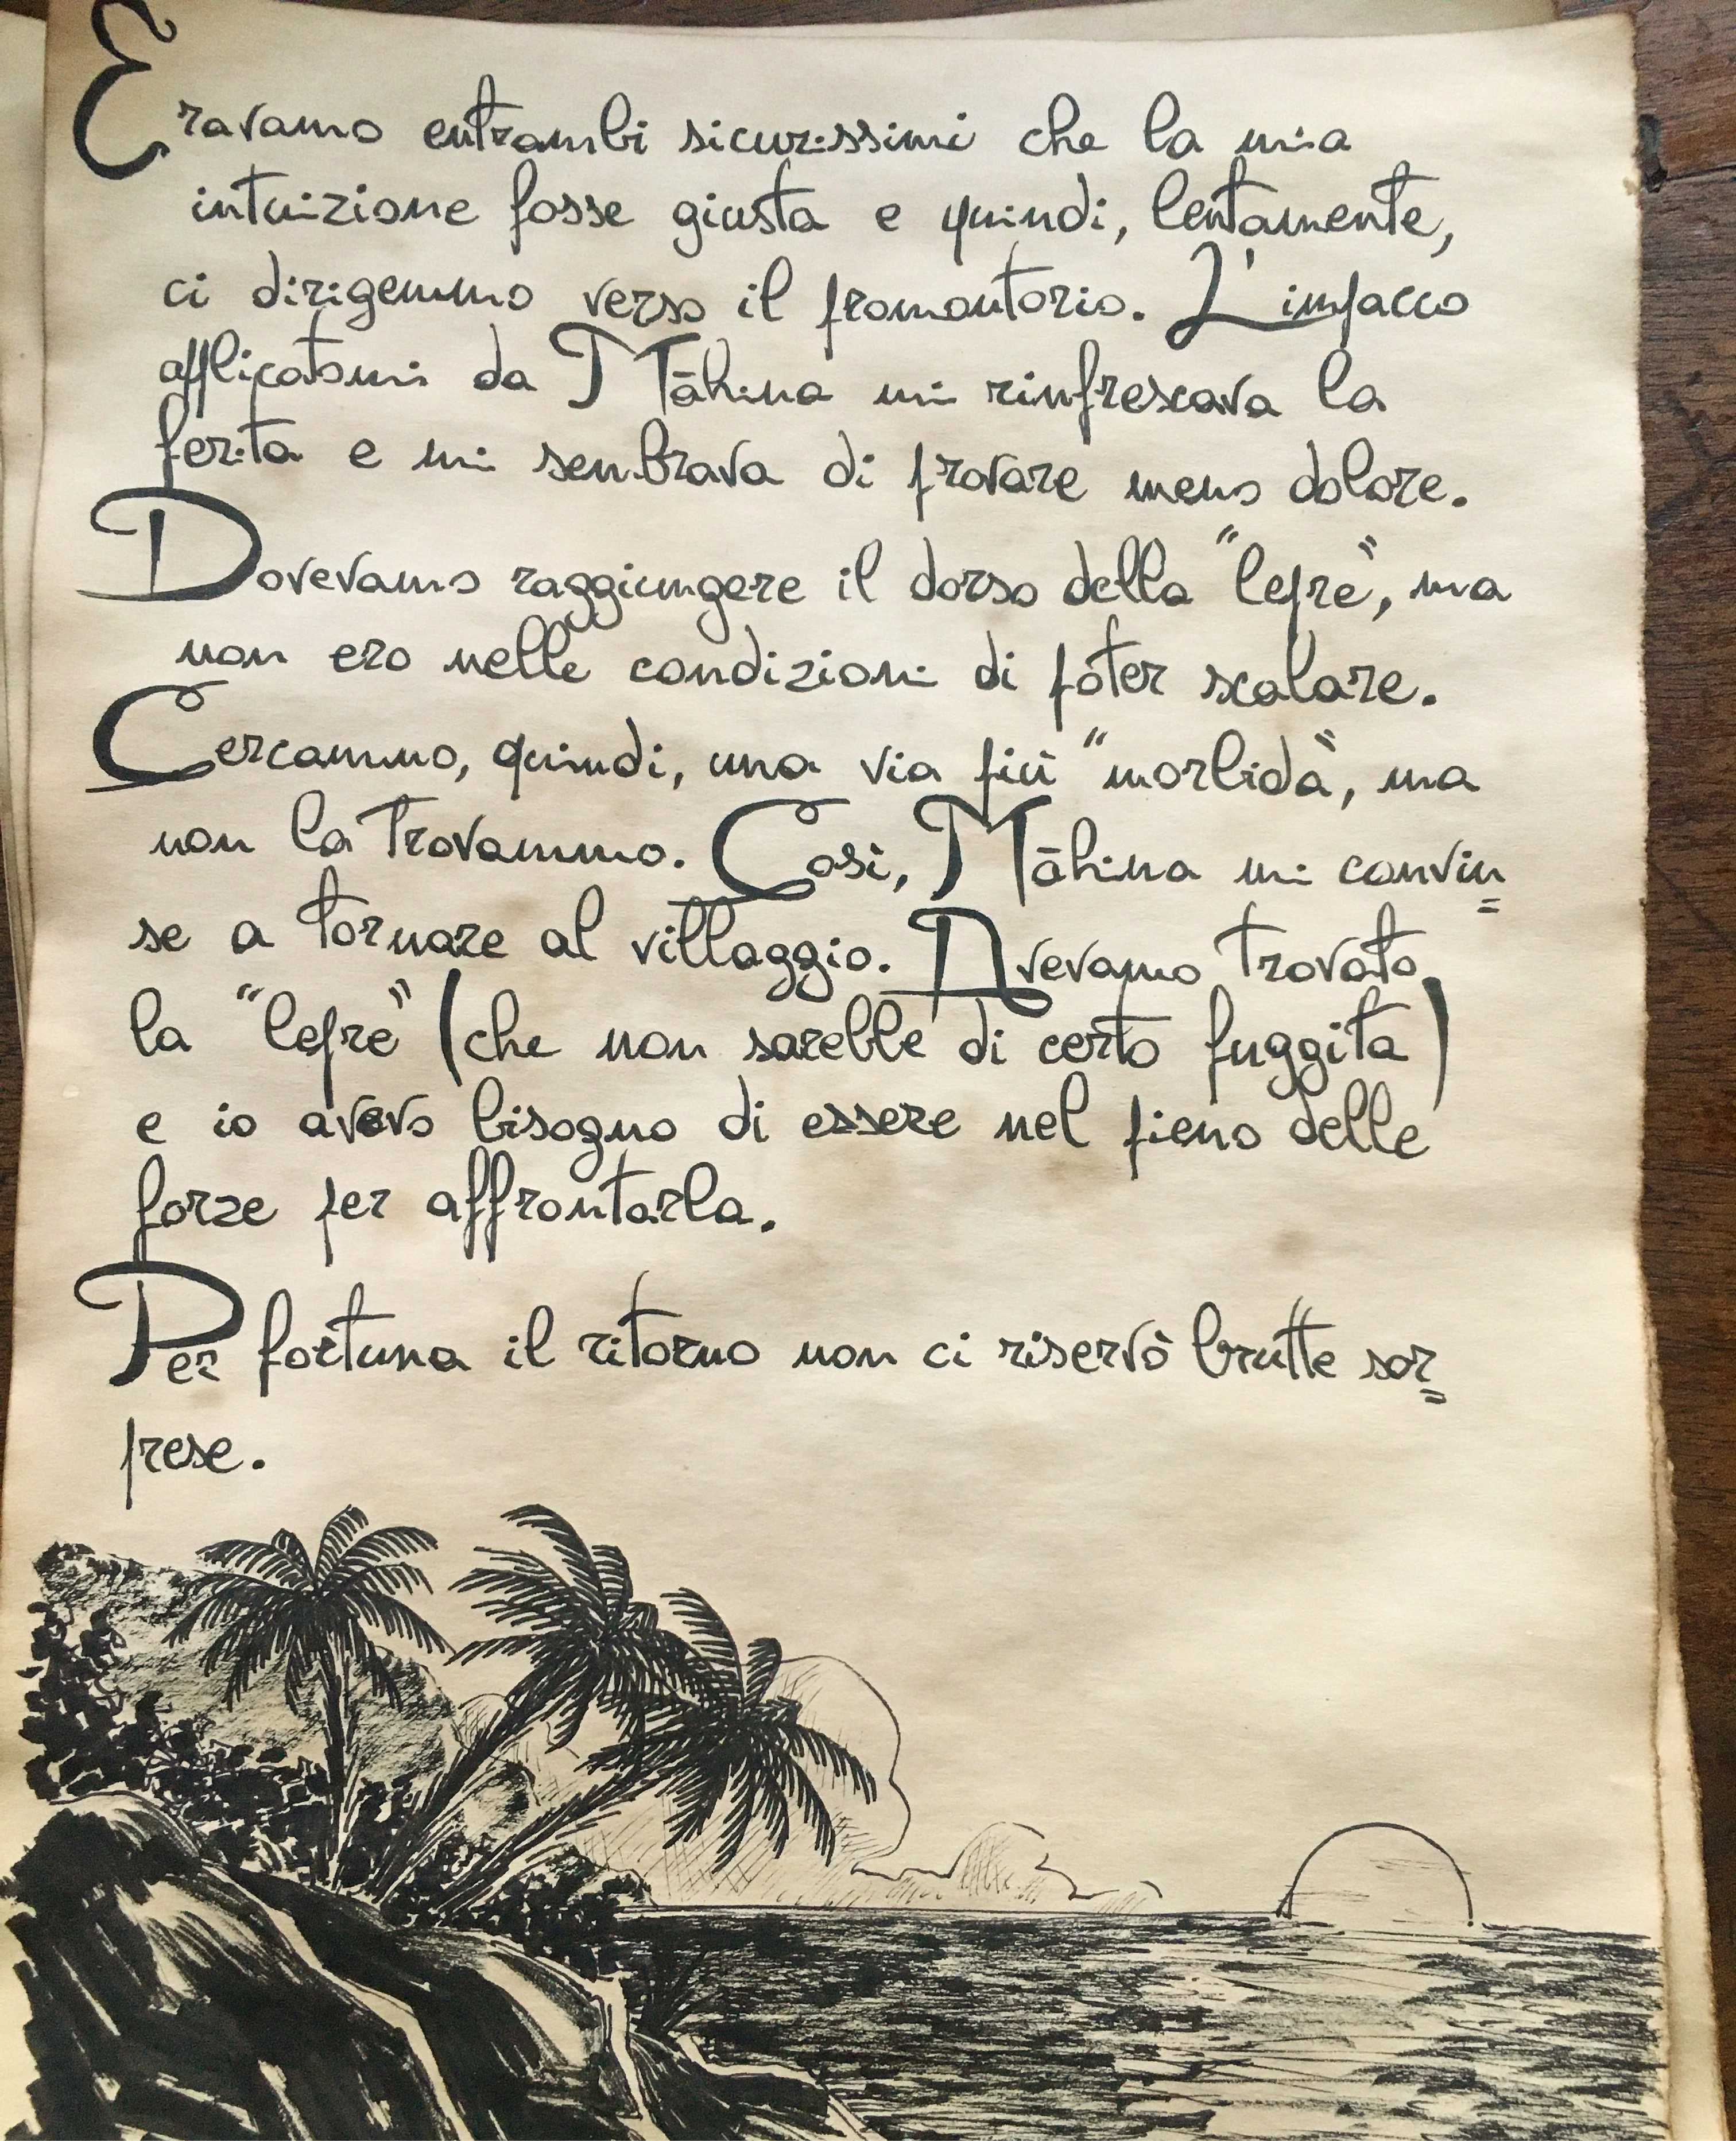 Eravamo entrambi sicurissimi che la mia
intuizione fosse giusta e quindi, lentamente,
ci dirigemmo verso il promontorio. L'impacco
applicatomi da Māhina mi rinfrescava la
ferita e mi sembrava di provare meno dolore.
Dovevamo raggiungere il dorso della "lepre", ma
non ero nelle condizioni di poter scalare.
Cercammo, quindi, una via più "morbida", ma
non la trovammo. Così, Māhina mi convin=
se a tornare al villaggio. Avevamo trovato
la "lepre" (che non sarebbe di certo fuggita)
e io avevo bisogno di essere nel pieno delle
forze per affrontarla.
Per fortuna il ritorno non ci riservò brutte sor=
prese.